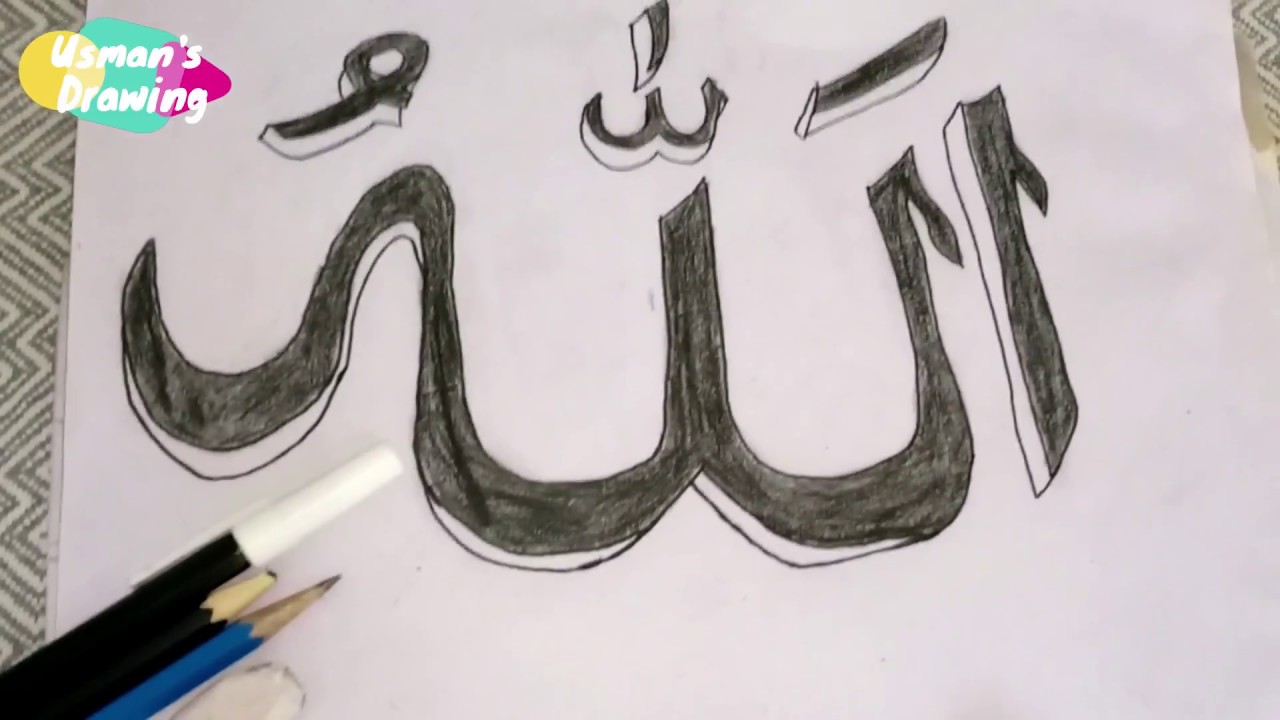 Usman's
Drawing
اَللّٰهُ